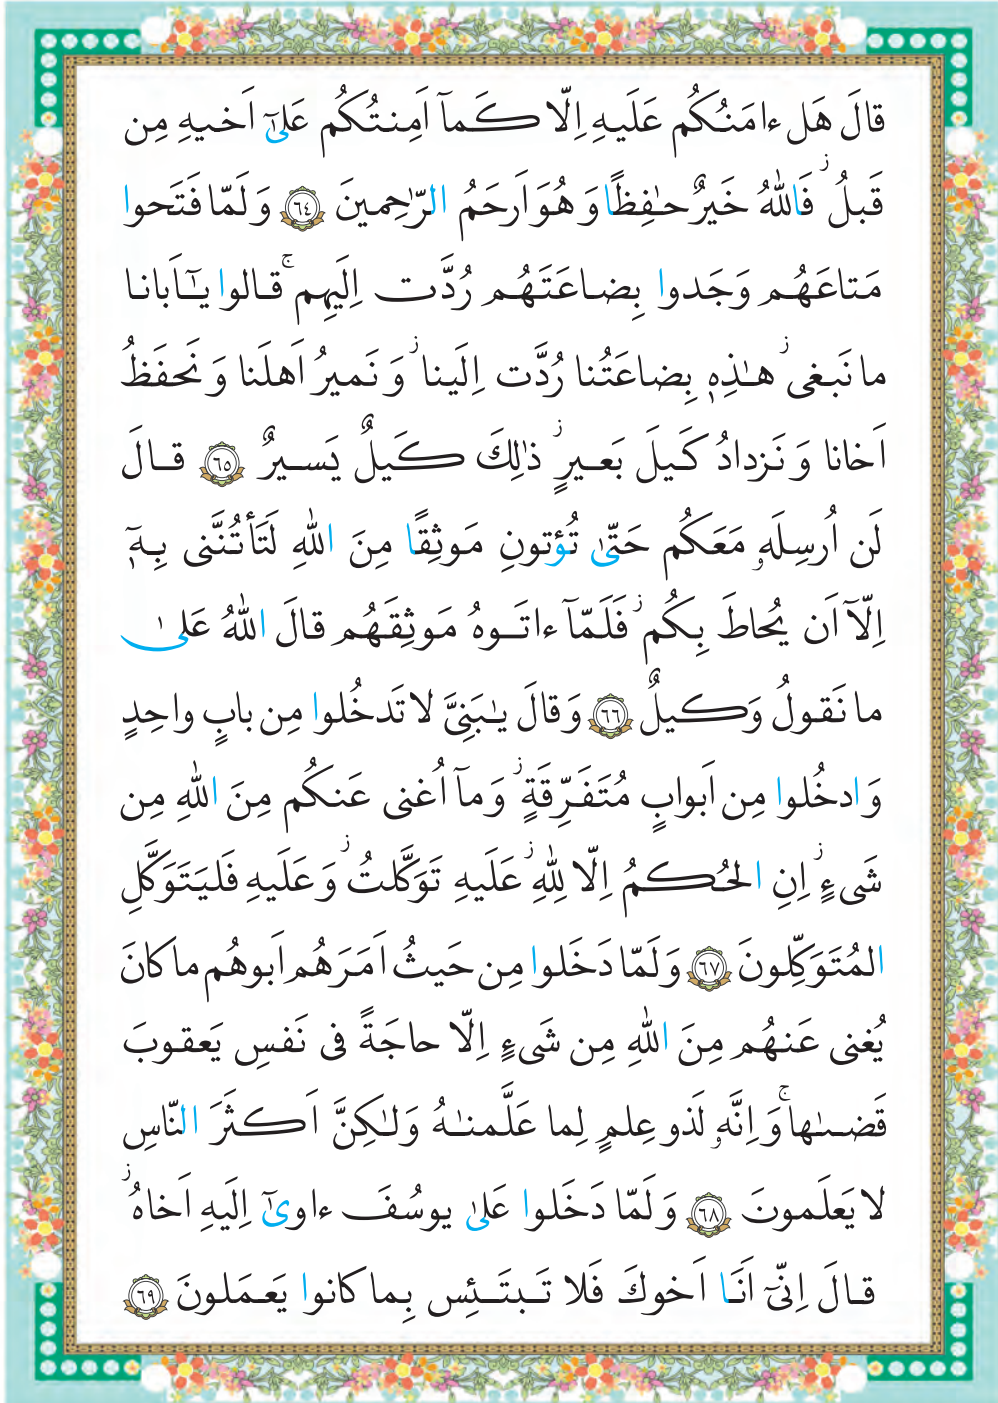 قالَ هَل ءامَنُكُم عَلَيهِ اِلّا كَمآ اَمِنتُكُم عَلىٰٓ اَخيهِ مِن
قَبلُ ۖ فَاللّٰهُ خَيرٌ حٰفِظًا وَ هُوَ اَرحَمُ الرّٰحِمينَ ﴿٦٤﴾ وَ لَمّا فَتَحوا
مَتاعَهُم وَجَدوا بِضاعَتَهُم رُدَّت اِلَيهِم ۚ قالوا يٰٓاَبانا
ما نَبغى ۖ هٰذِهٖ بِضاعَتُنا رُدَّت اِلَينا ۖ وَ نَميرُ اَهلَنا وَ نَحفَظُ
اَخانا وَ نَزدادُ كَيلَ بَعيرٍ ۖ ذٰلِكَ كَيلٌ يَسيرٌ ﴿٦٥﴾ قالَ
لَن اُرسِلَهٗ مَعَكُم حَتّىٰ تُؤتونِ مَوثِقًا مِنَ اللّٰهِ لَتَأتُنَّنى بِهٖٓ
اِلّآ اَن يُحاطَ بِكُم ۖ فَلَمّآ ءاتَوهُ مَوثِقَهُم قالَ اللّٰهُ عَلىٰ
ما نَقولُ وَكيلٌ ﴿٦٦﴾ وَ قالَ يٰبَنِىَّ لا تَدخُلوا مِن بابٍ واحِدٍ
وَ ادخُلوا مِن اَبوابٍ مُتَفَرِّقَةٍ ۖ وَ مآ اُغنى عَنكُم مِنَ اللّٰهِ مِن
شَىءٍ ۖ اِنِ الحُكمُ اِلّا لِلّٰهِ ۖ عَلَيهِ تَوَكَّلتُ ۖ وَ عَلَيهِ فَليَتَوَكَّلِ
المُتَوَكِّلونَ ﴿٦٧﴾ وَ لَمّا دَخَلوا مِن حَيثُ اَمَرَهُم اَبوهُم ما كانَ
يُغنى عَنهُم مِنَ اللّٰهِ مِن شَىءٍ اِلّا حاجَةً فى نَفسِ يَعقوبَ
قَضىٰها ۚ وَ اِنَّهٗ لَذو عِلمٍ لِما عَلَّمنٰهُ وَلٰكِنَّ اَكثَرَ النّاسِ
لا يَعلَمونَ ﴿٦٨﴾ وَ لَمّا دَخَلوا عَلىٰ يوسُفَ ءاوىٰٓ اِلَيهِ اَخاهُ ۖ
قالَ اِنّىٓ اَنَا اَخوكَ فَلا تَبتَئِس بِما كانوا يَعمَلونَ ﴿٦٩﴾